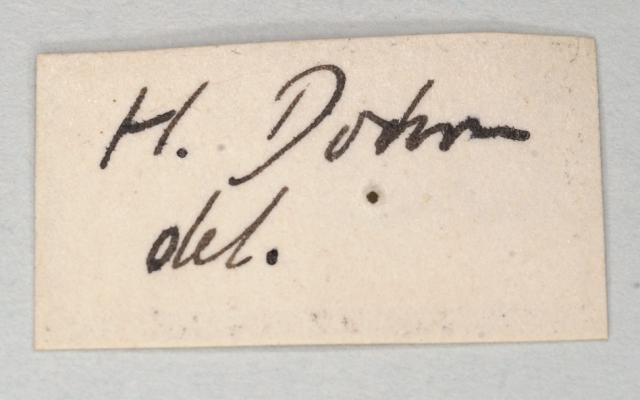 H. Dohrn
del.